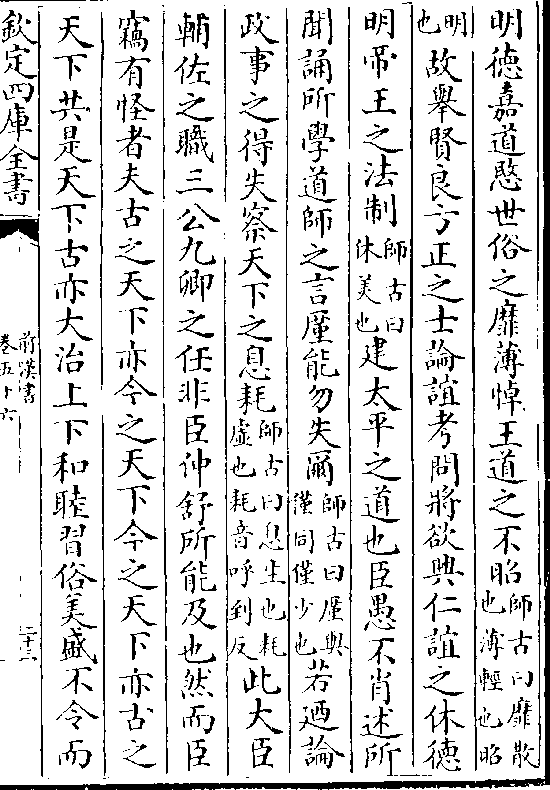 明德嘉道愍世俗之靡薄悼王道之不昭師古曰靡散也薄輕也昭
明也故舉賢良方正之士論誼考問將欲興仁誼之休德
明帝王之法制師古曰休美也建太平之道也臣愚不肖述所
聞誦所學道師之言廑能勿失爾師古曰廑與僅同僅少也若廼論
政事之得失察天下之息耗師古曰息生也耗虛也耗音呼到反此大臣
輔佐之職三公九卿之任非臣仲舒所能及也然而臣
竊有怪者夫古之天下亦今之天下今之天下亦古之
天下共是天下古亦大治上下和睦習俗美盛不令而
欽定四庫全書
前漢書
卷五十六
二十二